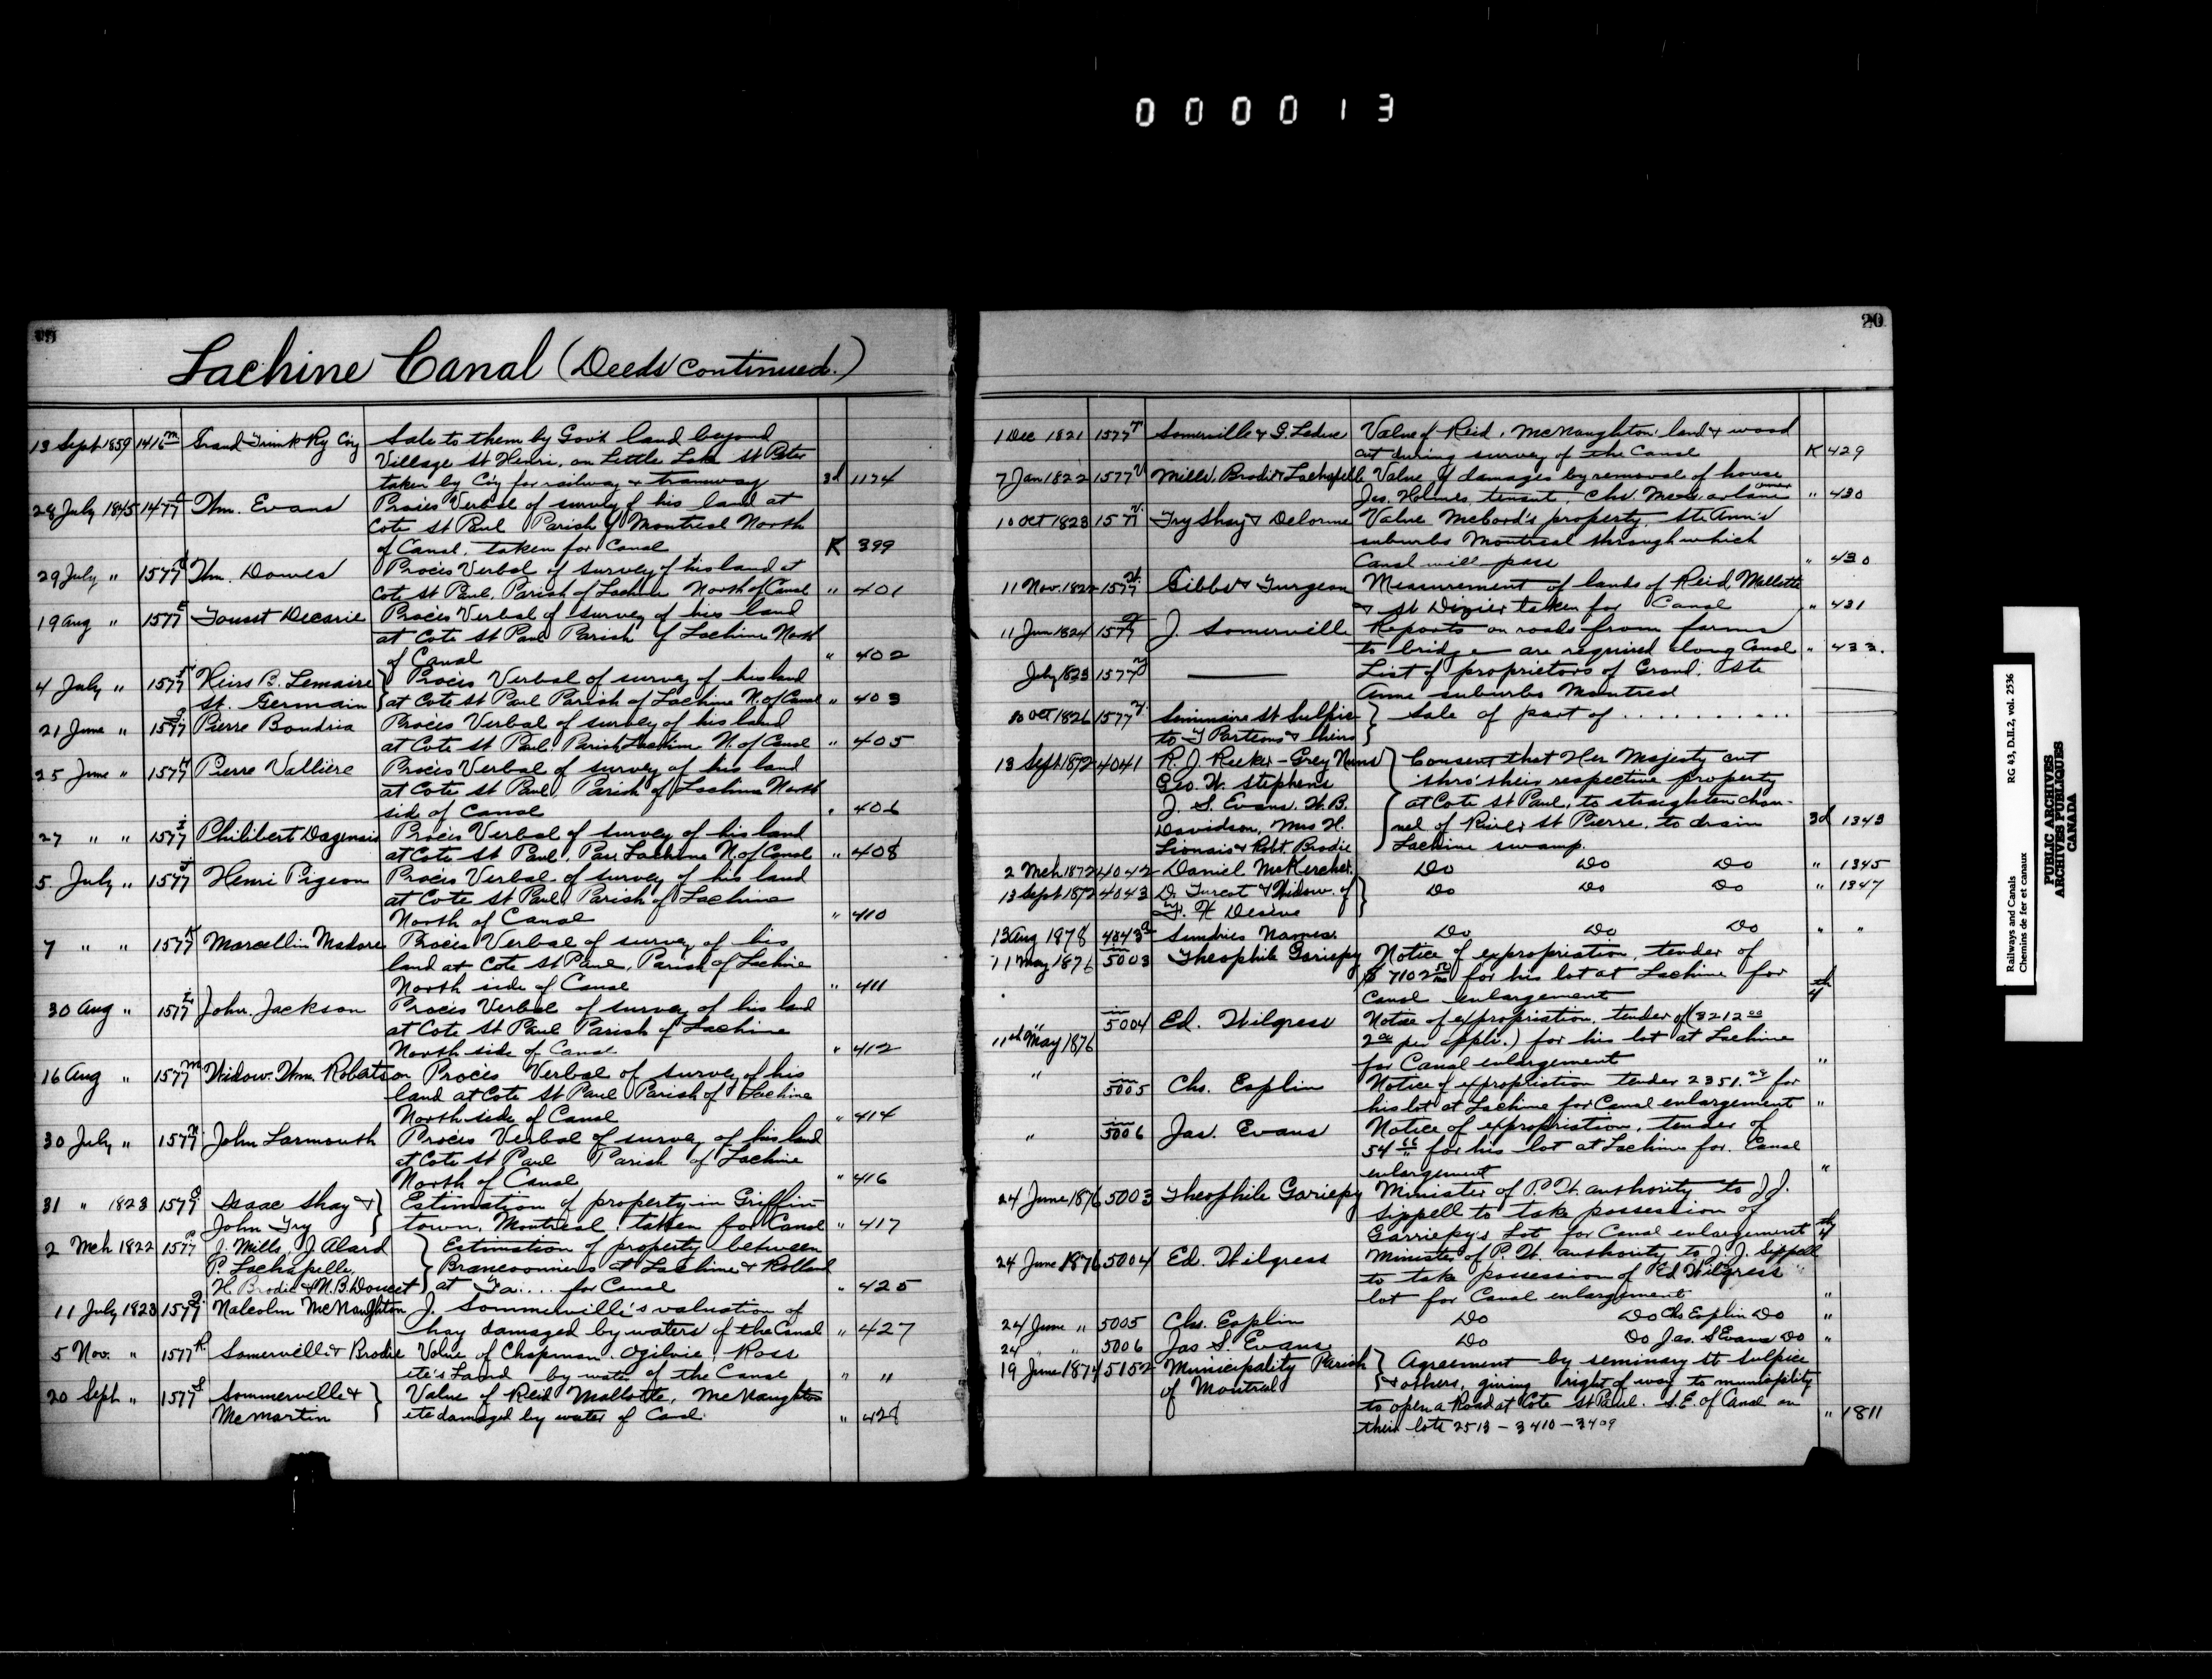 000013
20
Lachine Canal (Deeds continued.)
13 Sept 1859 1416 m Grand Trunk Ry Coy Sale to them by Gov't land beyond
Village St Henri, on Little Lake St Peter
taken by Coy for railway & tramway 3d 1174
28 July 1845 1477 Thm. Evans Procès Verbal of survey of his land at
Cote St Paul Parish of Montreal North
of Canal, taken for Canal K 399
29 July " 1577 d Thm. Dowes Procès Verbal of survey of his land at
Cote St Paul, Parish of Lachine North of Canal " 401
19 Aug " 1577 E Touset Decarie Procès Verbal of survey of his land
at Cote St Paul Parish of Lachine North
of Canal " 402
4 July " 1577 F Heirs B. Lemaire Procès Verbal of survey of his land
St. Germain at Cote St Paul Parish of Lachine N. of Canal " 403
21 June " 1577 g Pierre Boudria Procès Verbal of survey of his land
at Cote St Paul, Parish Lachine N. of Canal " 405
25 June " 1577 H Pierre Vallière Procès Verbal of survey of his land
at Cote St Paul, Parish of Lachine North
side of Canal " 406
27 " " 1577 I Philibert Dagenais Procès Verbal of survey of his land
at Cote St Paul, Par. Lachine N. of Canal " 408
5 July " 1577 J Henri Pigeon Procès Verbal of survey of his land
at Cote St Paul, Parish of Lachine
North of Canal " 410
7 " " 1577 K Marcellin Madore Procès Verbal of survey of his
land at Cote St Paul, Parish of Lachine
North side of Canal " 411
30 Aug " 1577 L John Jackson Procès Verbal of survey of his land
at Cote St Paul Parish of Lachine
North side of Canal " 412
16 Aug " 1577 m Widow Wm. Robertson Procès Verbal of survey of his
land at Cote St Paul Parish of Lachine
North side of Canal " 414
30 July " 1577 n John Larmouth Procès Verbal of survey of his land
at Cote St Paul Parish of Lachine
North of Canal " 416
31 " 1823 1577 O Isaac Shay & Estimation of property in Griffin-
John Try town, Montreal, taken for Canal " 417
2 Mch 1822 1577 P J. Mills, J Alard Estimation of property between
P. Lachapelle, at Lachine & Rolland
H Brodie & N. B. Doucet at Fa.... for Canal " 425
11 July 1823 1577 Q Malcolm McNaughton J. Sommerville's valuation of
hay damaged by waters of the Canal " 427
5 Nov. " 1577 R Somerville & Brodie Value of Chapman, Ogilvie, Ross
etc's Land by water of the Canal " "
20 Sept " 1577 S Sommerville & Value of Reid Mallotte, McNaughton
McMartin etc damaged by water of Canal. " 428
1 Dec 1821 1577 T Somerville & G. Leduc Value of Reid, McNaughton land & wood
cut during survey of the Canal K 429
7 Jan 1822 1577 U Mills, Brodie & Lachapelle Value of damages by removal of house
Jas. Holmes, tenant, Chs. owner " 430
10 Oct 1823 1577 V Try Shay & Delorme Value McCord's property, Ste Ann's
suburbs Montreal through which
Canal will pass " 430
11 Nov. 1822 1577 W Gibbs & Turgeon Measurement of lands of Reid Mallotte
& St Dizier taken for Canal " 431
11 Jun 1824 1577 J. Somerville Reports on roads from farms
to bridge are required along Canal " 433.
July 1823 1577 List of proprietors of Grand, Ste
Anne suburbs Montreal
10 Oct 1826 1577 Seminaire St Sulpice Sale of part of ...........
to J Parteous & heirs
13 Sept 1872 4041 R. J. Reeker - Grey Nuns Consent that Her Majesty cut
Geo. W. Stephens thro' their respective property
J. S. Evans. W. B. at Cote St Paul, to straighten chan-
Davidson, Mrs H. nel of River St Pierre, to drain 3d 1343
Lionais & Robt. Brodie Lachine swamp.
2 Mch 1872 4042 Daniel McKercher. Do Do Do " 1345
13 Sept 1872 4043 D. Turcot & Widow of Do Do Do " 1347
13 Aug 1878 4043 a Sundries Names. Do Do Do " "
11 May 1876 5003 Theophile Gariepy Notice of expropriation, tender of
$ 7102 for his lot at Lachine for
Canal enlargement 4th
11th May 1876 5004 Ed. Wilgress Notice of expropriation, tender of (3212 00
per appli.) for his lot at Lachine
for Canal enlargement "
" 5005 Chs. Esplin Notice of expropriation tender 2351. for
his lot at Lachine for Canal enlargement "
" 5006 Jas. Evans Notice of expropriation, tender of
54 for his lot at Lachine for. Canal
enlargement "
24 June 1876 5003 Theophile Gariepy Minister of P. W. authority to J J.
Sippell to take possession of
Garriepy's Lot for Canal enlargement 4th
24 June 1876 5004 Ed. Wilgress Minister of P. W. authority to J. J. Sippell
to take possession of Ed Wilgress
lot for Canal enlargement "
24 June " 5005 Chs. Esplin Do Do Chs Esplin Do "
24 " " 5006 Jas S. Evans Do Do Jas. S Evans Do "
19 June 1874 5152 Municipality Parish Agreement by seminary St Sulpice
of Montreal & others, giving right of way to municipality
to open a Road at Cote St Paul. S. E. of Canal on
their lots 2513 - 3410 - 3409 " 1811
Railways and Canals RG 43, D.II.2, vol. 2536
Chemins de fer et canaux
PUBLIC ARCHIVES
ARCHIVES PUBLIQUES
CANADA